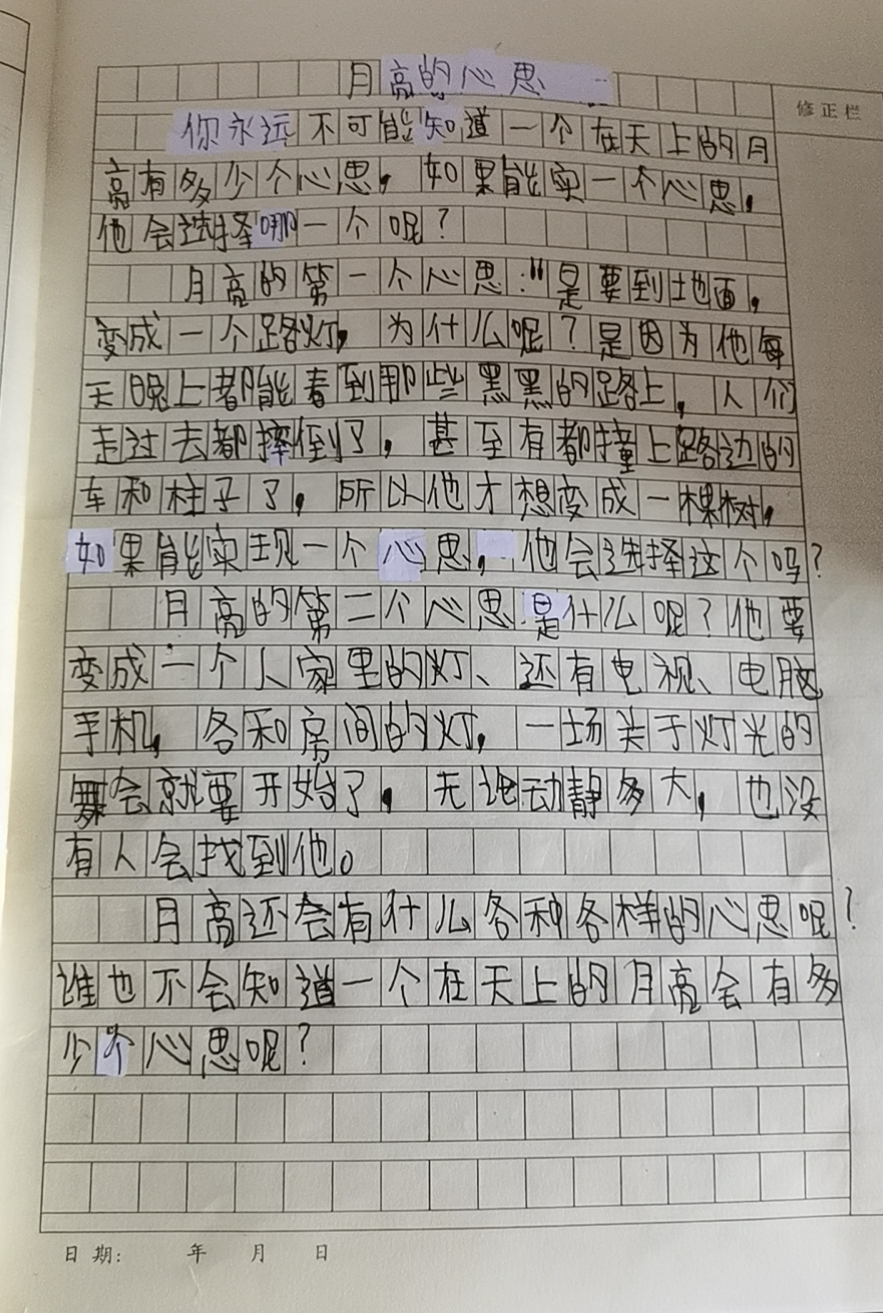 月亮的心思
修正栏
你永远不可能知道一个在天上的月
亮有多少个心思，如果能实一个心思，
他会选择哪一个呢？
月亮的第一个心思："是要到地面，
变成一个路灯，为什么呢？是因为他每
天晚上都能看到那些黑黑的路上，人们
走过去都摔倒了，甚至有都撞上路边的
车和柱子了，所以他才想变成一棵树，
如果能实现一个心思，他会选择这个吗？
月亮的第二个心思是什么呢？他要
变成一个人家里的灯、还有电视、电脑
手机，各和房间的灯，一场关于灯光的
舞会就要开始了，无论动静多大，也没
有人会找到他。
月亮还会有什么各种各样的心思呢？
谁也不会知道一个在天上的月亮会有多
少个心思呢？
日期： 年 月 日